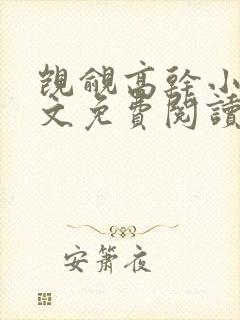 覬覦高幹小
文免費閱讀
安簫夜